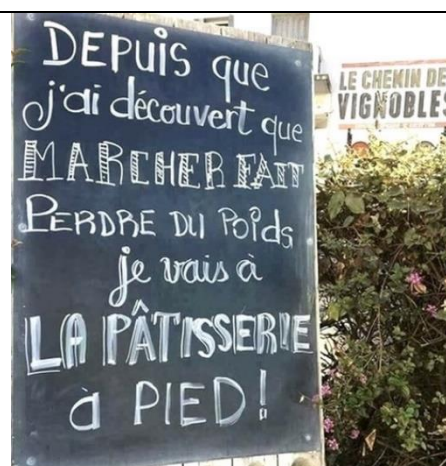 DEPUIS que
j'ai découvert que
MARCHER FAIT
PERDRE DU POIDS
je vais à
LA PÂTISSERIE
à PIED!
LE CHEMIN DE
VIGNOBLES